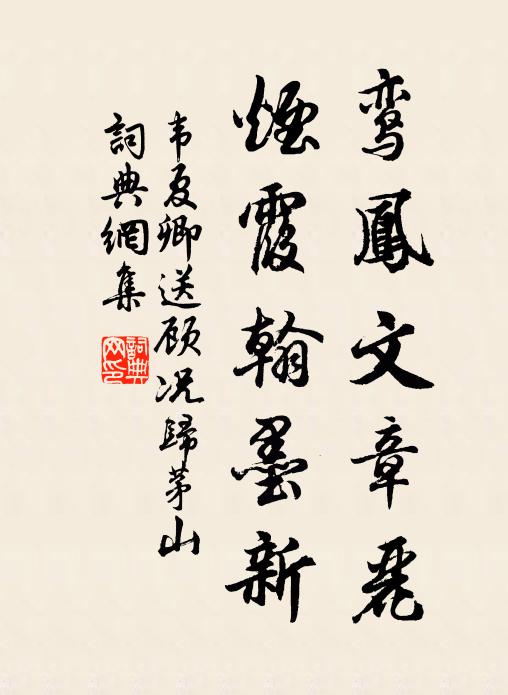 鸾鳳文章麗
煙霞翰墨新
韦夏卿送顾况歸茅山
詞典網集
詞典网印